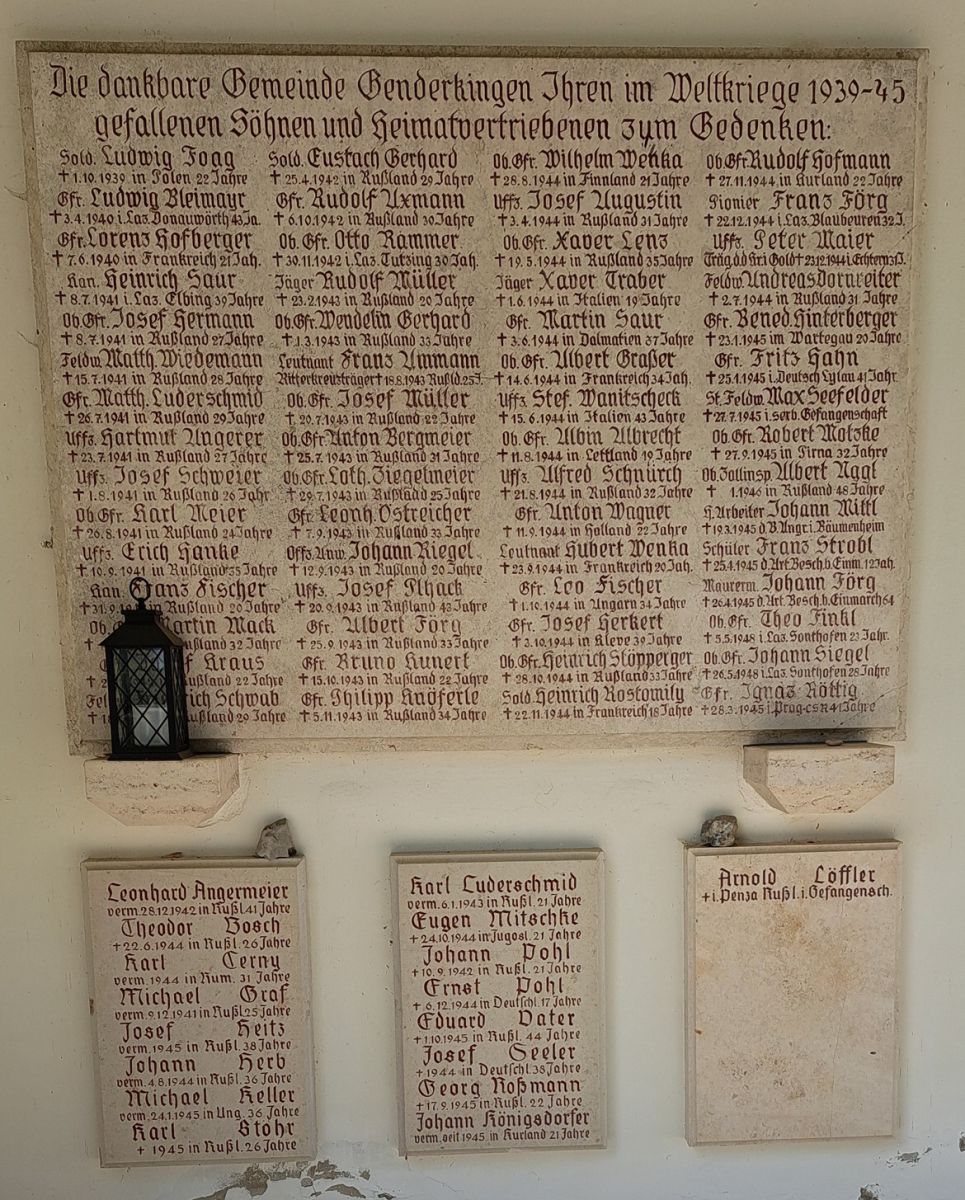 Die dankbare Gemeinde Genderkingen Ihren im Weltkriege 1939-45
gefallenen Söhnen und Heimatvertriebenen zum Gedenken:
Sold. Ludwig Foag
✝ 1.10.1939 in Polen 22 Jahre
Gfr. Ludwig Bleimayr
✝ 3.4.1940 i. Laz. Donauwörth 43 Ja.
Gfr. Lorenz Hofberger
✝ 7.6.1940 in Frankreich 21 Jah.
Kan. Heinrich Saur
✝ 8.7.1941 i. Laz. Elbing 39 Jahre
Ob. Gfr. Josef Hermann
✝ 8.7.1941 in Rußland 27 Jahre
Feldw. Matth. Wiedemann
✝ 15.7.1941 in Rußland 28 Jahre
Gfr. Matth. Luderschmid
✝ 26.7.1941 in Rußland 29 Jahre
Uffz. Hartmut Ungerer
✝ 23.7.1941 in Rußland 27 Jahre
Uffz. Josef Schweier
✝ 1.8.1941 in Rußland 26 Jahr.
Ob. Gfr. Karl Meier
✝ 26.8.1941 in Rußland 24 Jahre
Uffz. Erich Hanke
✝ 10.9.1941 in Rußland 35 Jahre
Kan. Franz Fischer
✝ 31.9.19 in Rußland 20 Jahre
Ob. Martin Mack
Rußland 32 Jahre
Gfr. Kraus
Rußland 22 Jahre
Schwab
Rußland 29 Jahre
Sold. Eustach Gerhard
✝ 25.4.1942 in Rußland 29 Jahre
Gfr. Rudolf Uxmann
✝ 6.10.1942 in Rußland 30 Jahre
Ob. Gfr. Otto Rammer
✝ 30.11.1942 i. Laz. Tutzing 30 Jah.
Jäger Rudolf Müller
✝ 23.2.1943 in Rußland 20 Jahre
Ob. Gfr. Wendelin Gerhard
✝ 1.3.1943 in Rußland 33 Jahre
Leutnant Franz Ammann
Ritterkreuzträger ✝ 18.8.1943 Rußld. 25 J.
Ob. Gfr. Josef Müller
✝ 20.7.1943 in Rußland 22 Jahre
Ob. Gfr. Anton Bergmeier
✝ 25.7.1943 in Rußland 31 Jahre
Ob. Gfr. Loth. Ziegelmeier
✝ 29.7.1943 in Rußland 25 Jahre
Gfr. Leonh. Ostreicher
✝ 7.9.1943 in Rußland 33 Jahre
Offz. Anw. Johann Riegel
✝ 12.9.1943 in Rußland 20 Jahre
Uffz. Josef Plhack
✝ 20.9.1943 in Rußland 43 Jahre
Gfr. Albert Förg
✝ 25.9.1943 in Rußland 33 Jahre
Gfr. Bruno Kunert
✝ 15.10.1943 in Rußland 22 Jahre
Gfr. Philipp Knöferle
✝ 5.11.1943 in Rußland 34 Jahre
Ob. Gfr. Wilhelm Wenka
✝ 28.8.1944 in Finnland 21 Jahre
Uffz. Josef Augustin
✝ 3.4.1944 in Rußland 31 Jahre
Ob. Gfr. Xaver Lenz
✝ 19.5.1944 in Rußland 35 Jahre
Jäger Xaver Traber
✝ 1.6.1944 in Italien 19 Jahre
Gfr. Martin Saur
✝ 3.6.1944 in Dalmatien 37 Jahre
Ob. Gfr. Albert Graßer
✝ 14.6.1944 in Frankreich 34 Jah.
Uffz. Stef. Wanitscheck
✝ 15.6.1944 in Italien 43 Jahre
Ob. Gfr. Albin Albrecht
✝ 11.8.1944 in Lettland 19 Jahre
Uffz. Alfred Schnürch
✝ 21.8.1944 in Rußland 32 Jahre
Gfr. Anton Wagner
✝ 11.9.1944 in Holland 22 Jahre
Leutnant Hubert Wenka
✝ 23.9.1944 in Frankreich 20 Jah.
Gfr. Leo Fischer
✝ 1.10.1944 in Ungarn 34 Jahre
Gfr. Josef Herkert
✝ 3.10.1944 in Kleve 39 Jahre
Ob. Gfr. Heinrich Stöpperger
✝ 28.10.1944 in Rußland 33 Jahre
Sold. Heinrich Rostomily
✝ 22.11.1944 in Frankreich 18 Jahre
Ob. Gfr. Rudolf Hofmann
✝ 27.11.1944 in Kurland 22 Jahre
Pionier Franz Förg
✝ 22.12.1944 i. Laz. Blaubeuren 32 J.
Uffz. Peter Maier
Träg. d. d. Krz. i. Gold ✝ 23.12.1944 i. Echtern. 31 J.
Feldw. Andreas Dornreiter
✝ 2.7.1944 in Rußland 31 Jahre
Gfr. Bened. Hinterberger
✝ 23.1.1945 im Wartegau 20 Jahre
Gfr. Fritz Hahn
✝ 25.1.1945 i. Deutsch Eylau 41 Jahr.
St. Feldw. Max Seefelder
✝ 27.7.1945 i. serb. Gefangenschaft
Ob. Gfr. Robert Motzke
✝ 27.9.1945 in Pirna 32 Jahre
Ob. Zollinsp. Albert Aggl
✝ 1.1946 in Rußland 48 Jahre
H. Arbeiter Johann Mittl
✝ 19.3.1945 d. B. Angr. i. Bäumenheim
Schüler Franz Strobl
✝ 25.4.1945 d. Art. Besch. b. Einm. 12 Jah.
Maurerm. Johann Förg
✝ 26.4.1945 d. Art. Besch. b. Einmarch 64
Ob. Gfr. Theo Finkl
✝ 5.5.1948 i. Laz. Sonthofen 23 Jahr.
Ob. Gfr. Johann Siegel
✝ 26.5.1948 i. Laz. Sonthofen 28 Jahre
Gfr. Ignaz Röttig
✝ 28.3.1945 i. Prag-ČSR 41 Jahre
Leonhard Angermeier
verm. 28.12.1942 in Rußl. 41 Jahre
Theodor Bosch
+ 22.6.1944 in Rußl. 26 Jahre
Karl Cerny
verm. 1944 in Rum. 31 Jahre
Michael Graf
verm. 9.12.1941 in Rußl. 25 Jahre
Josef Heitz
verm. 1945 in Rußl. 38 Jahre
Johann Herb
verm. 4.8.1944 in Rußl. 36 Jahre
Michael Keller
verm. 24.1.1945 in Ung. 36 Jahre
Karl Stohr
+ 1945 in Rußl. 26 Jahre
Karl Luderschmid
verm. 6.1.1943 in Rußl. 21 Jahre
Eugen Mitschke
+ 24.10.1944 in Jugosl. 21 Jahre
Johann Pohl
+ 10.9.1942 in Rußl. 21 Jahre
Ernst Pohl
+ 6.12.1944 in Deutschl. 17 Jahre
Eduard Vater
+ 1.10.1945 in Rußl. 44 Jahre
Josef Seeler
+ 1944 in Deutschl. 38 Jahre
Georg Roßmann
+ 17.9.1945 in Rußl. 22 Jahre
Johann Königsdorfer
verm. seit 1945 in Kurland 21 Jahre
Arnold Löffler
+ i. Penza Rußl. i. Gefangensch.